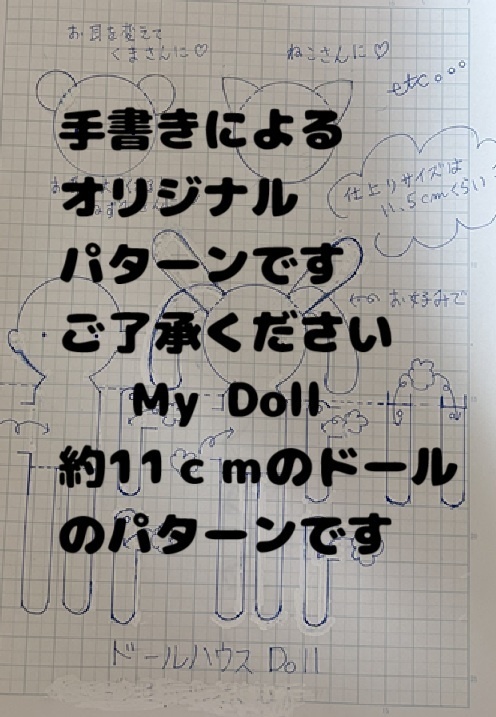 お耳を変えて
くまさんに♡
ねこさんに♡
etc。。。
仕上りサイズは
11.5cmくらい
手書きによる
オリジナル
パターンです
ご了承ください
My Doll
約11ｃｍのドール
のパターンです
お好みで
ドールハウス Doll